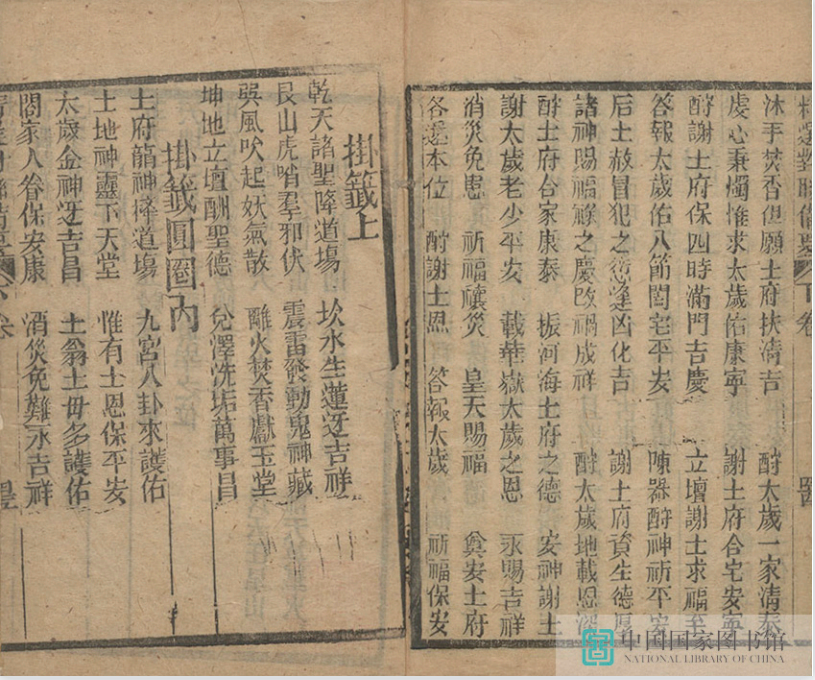 沐手焚香俱願土府扶清吉 酧太歲一家清泰
虔心秉燭惟求太歲佑康寧 謝土府合宅安寧
酧謝土府保四時滿門吉慶 立壇謝土求福至
答報太歲佑八節閤宅平安 陳器酧神祈平安
后土赦冒犯之愆逢凶化吉 謝土府資生德厚
諸神賜福祿之慶改禍成祥 酧太歲地載恩深
酧土府合家康泰 振河海土府之德 安神謝土
謝太歲老少平安 載華嶽太歲之恩 永賜吉祥
消災免患 祈福禳災 皇天賜福 奠安土府
各還本位 酧謝土恩 答報太歲 祈福保安
掛籤上
乾天諸聖降道塲 坎水生蓮迓吉祥
艮山虎哨羣邪伏 震雷發動鬼神藏
巽風吹起妖氣散 離火焚香獻玉堂
坤地立壇酬聖德 兌澤洗垢萬事昌
掛籤圓圈內
土府龍神降道塲 九宮八卦來護佑
土地神靈下天堂 惟有土恩保平安
太歲金神迓吉昌 土翁土母多護佑
閤家人眷保安康 消災免難永吉祥
中国国家图书馆
NATIONAL LIBRARY OF CHINA